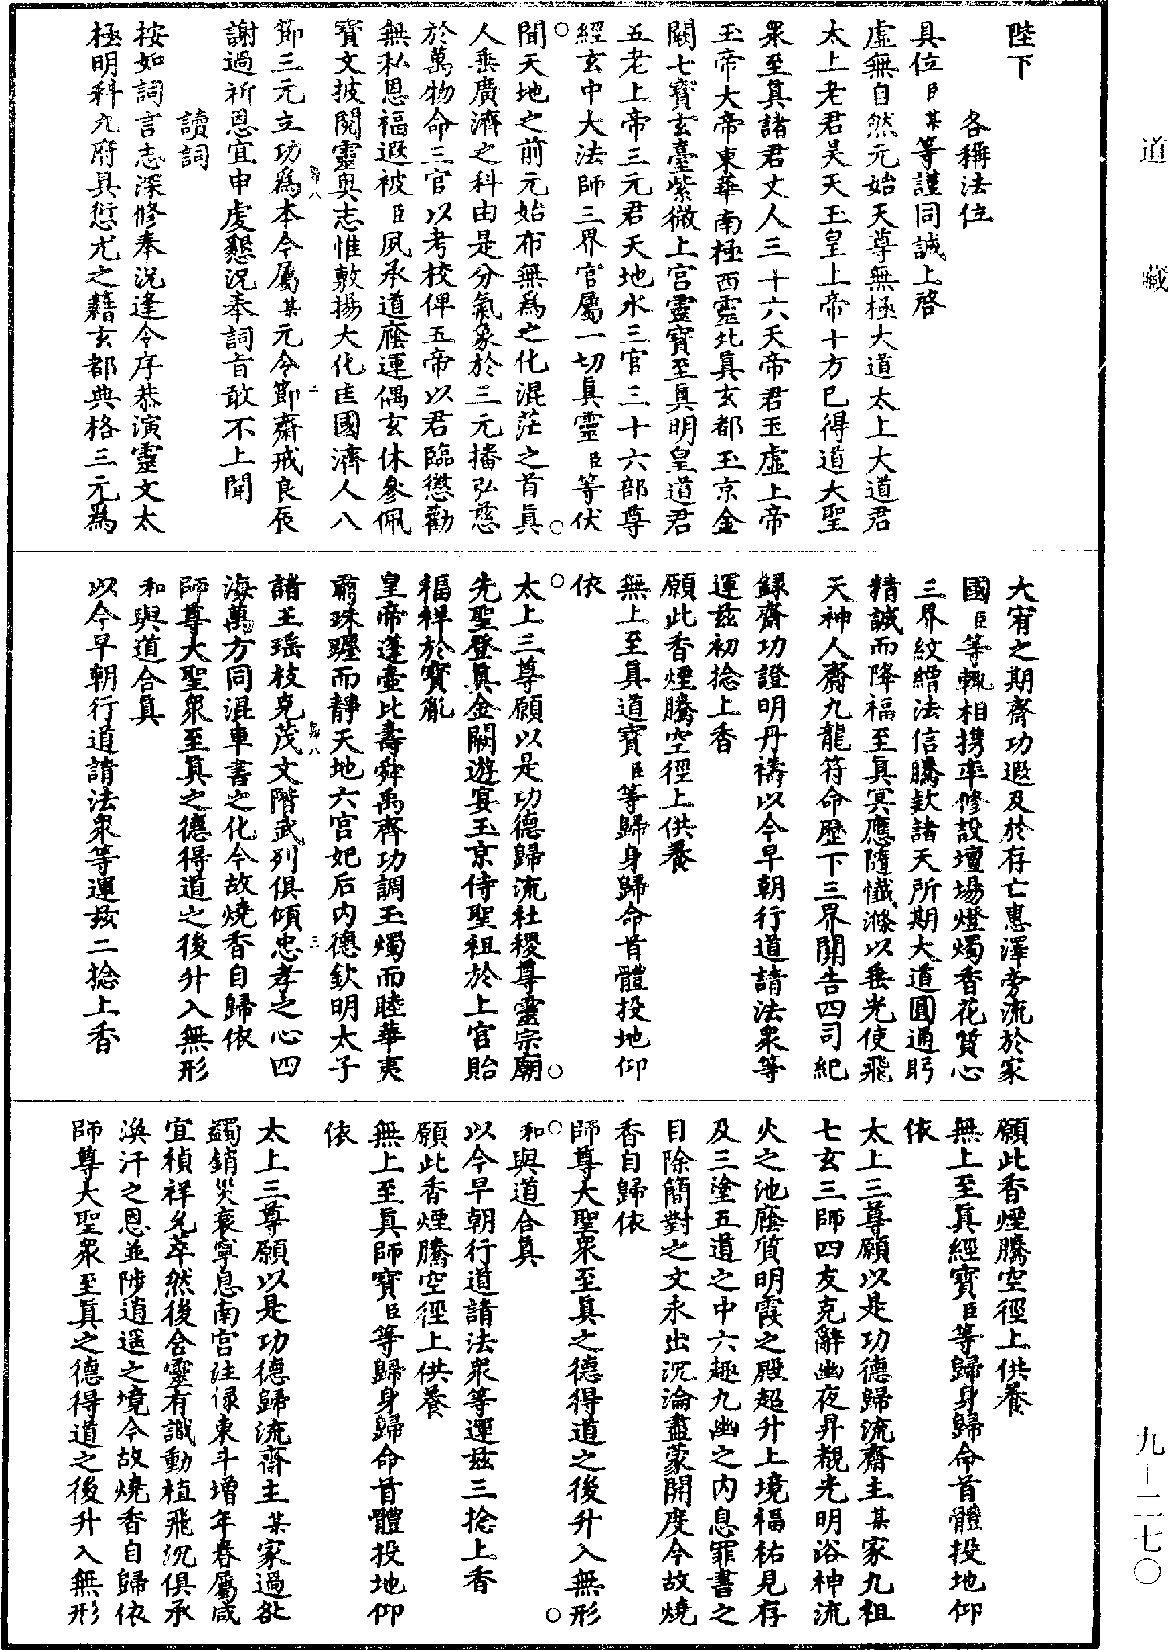 道藏
陛下
各稱法位
具位臣某等謹同誠上啓
虛無自然元始天尊無極大道太上大道君
太上老君昊天玉皇上帝十方已得道大聖
衆至真諸君丈人三十六天帝君玉虛上帝
玉帝大帝東華南極西靈北真玄都玉京金
闕七寶玄臺紫微上宮靈寶至真明皇道君
五老上帝三元君天地水三官三十六部尊
經玄中大法師三界官屬一切真靈臣等伏
聞天地之前元始布無爲之化混茫之首真
人垂廣濟之科由是分氣象於三元播弘慈
於萬物命三官以考校俾五帝以君臨懲勸
無私恩福遐被臣夙承道廕運偶玄休參佩
寶文披閱靈奧志惟敷揚大化匡國濟人八
節三元立功爲本今屬某元令節齋戒良辰
謝過祈恩宜申虔懇況奉詞旨敢不上聞
讀詞
按如詞言志深修奉況逢令序恭演靈文太
極明科九府具愆尤之籍玄都典格三元爲
大宥之期齋功遐及於存亡惠澤旁流於家
國臣等輒相携率修設壇場燈燭香花質心
三界紋繒法信騰欵諸天所期大道圓通眄
精誠而降福至真冥應隨懺滌以垂光使飛
天神人齋九龍符命歷下三界開告四司紀
録齋功證明丹禱以今早朝行道請法衆等
運兹初捻上香
願此香煙騰空徑上供養
無上至真道寶臣等歸身歸命首體投地仰
依
太上三尊願以是功德歸流社稷尊靈宗廟
先聖登真金闕遊宴玉京侍聖祖於上宮貽
福祥於寶胤
皇帝蓬壺比壽舜禹齊功調玉燭而睦華夷
翦珠躔而靜天地六宮妃后內德欽明太子
諸王瑶枝克茂文階武列俱傾忠孝之心四
海萬方同混車書之化今故燒香自歸依
師尊大聖衆至真之德得道之後升入無形
和與道合真
以今早朝行道請法衆等運兹二捻上香
願此香煙騰空徑上供養
無上至真經寶臣等歸身歸命首體投地仰
依
太上三尊願以是功德歸流齋主某家九祖
七玄三師四友克辭幽夜昇覩光明浴神流
火之池廕質明霞之殿超升上境福祐見存
及三塗五道之中六趣九幽之內息罪書之
目除簡對之文永出沉淪盡蒙開度今故燒
香自歸依
師尊大聖衆至真之德得道之後升入無形
和與道合真
以今早朝行道請法衆等運兹三捻上香
願此香煙騰空徑上供養
無上至真師寶臣等歸身歸命首體投地仰
依
太上三尊願以是功德歸流齋主某家過咎
蠲銷災衰寧息南宮注禄東斗增年眷屬咸
宜禎祥允萃然後含靈有識動植飛沉俱承
渙汗之恩並陟逍遥之境今故燒香自歸依
師尊大聖衆至真之德得道之後升入無形
九－二七〇